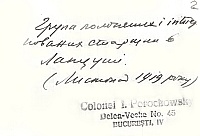 2
Група полонених і інтер
нованих старшин в
Ланцуті
(Листопа 1919 року)
Colonel I. Porochowsky
Delea-Veche No. 45
BUCUREȘTI, IV